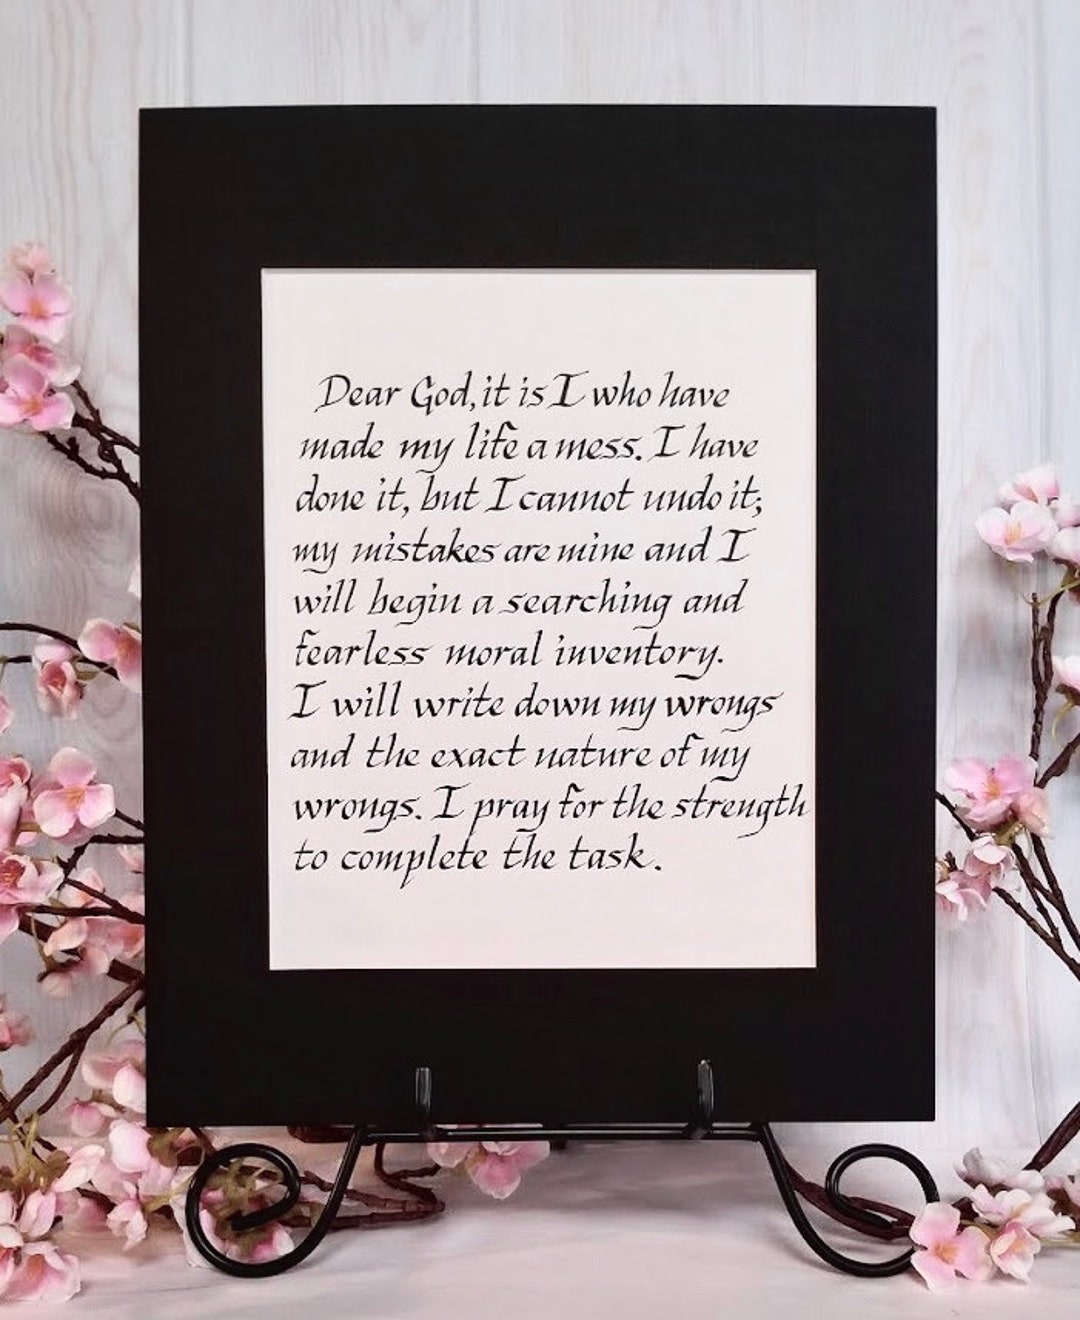 Dear God, it is I who have
made my life a mess. I have
done it, but I cannot undo it;
my mistakes are mine and I
will begin a searching and
fearless moral inventory.
I will write down my wrongs
and the exact nature of my
wrongs. I pray for the strength
to complete the task.